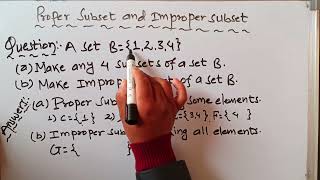 Proper Subset and Improper subset
Question: A set B={1,2,3,4}
(a) Make any 4 subsets of a set B.
(b) Make Improper set B.
Answer: (a) Proper some elements.
1) C={1} 2) 3,4} F={4}
(b) Improper su ing all elements.
G={ }